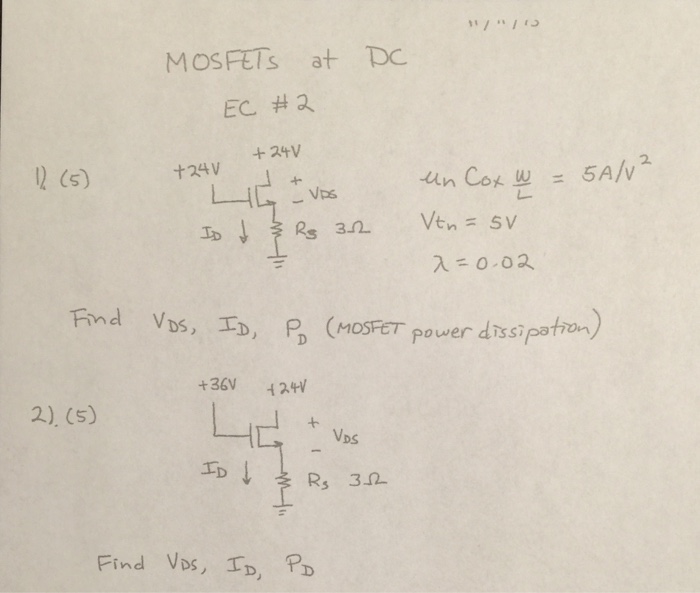 MOSFETs at DC
EC #2
1) (5)
+24V
+24V
+
- VDS
ID ↓
RS 3Ω
un Cox W/L = 5A/V²
Vtn = 5V
λ = 0.02
Find VDS, ID, PD (MOSFET power dissipation)
2). (5)
+36V +24V
+
VDS
-
ID ↓
Rs 3Ω
Find VDS, ID, PD